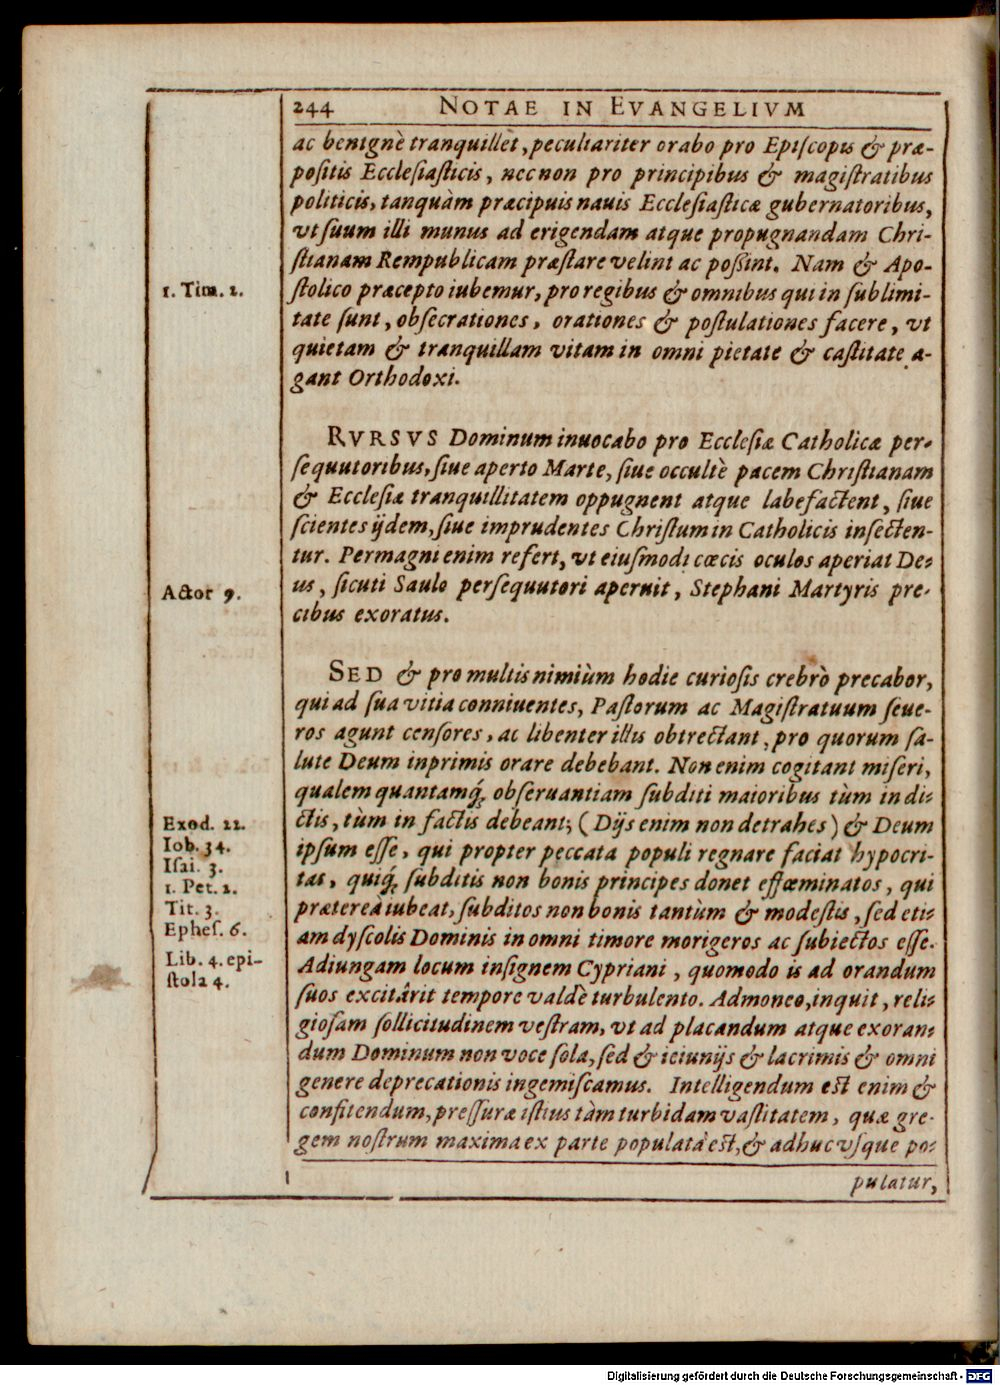 244 NOTAE IN EVANGELIVM
ac benignè tranquillèt, peculiariter orabo pro Episcopis & præ-
positis Ecclesiasticis, nec non pro principibus & magistratibus
politicis, tanquàm præcipuis nauis Ecclesiasticæ gubernatoribus,
vt suum illi munus ad erigendam atque propugnandam Chri-
stianam Rempublicam præstare velint ac possint. Nam & Apo-
1. Tim. 2.
stolico præcepto iubemur, pro regibus & omnibus qui in sublimi-
tate sunt, obsecrationes, orationes & postulationes facere, vt
quietam & tranquillam vitam in omni pietate & castitate a-
gant Orthodoxi.
RVRSVS Dominum inuocabo pro Ecclesiæ Catholicæ per-
sequutoribus, siue aperto Marte, siue occultè pacem Christianam
& Ecclesiæ tranquillitatem oppugnent atque labefactent, siue
scientes ijdem, siue imprudentes Christum in Catholicis insecten-
tur. Permagni enim refert, vt eiusmodi cæcis oculos aperiat De-
Actor 9.
us, sicuti Saulo persequutori aperuit, Stephani Martyris pre-
cibus exoratus.
SED & pro multis nimiùm hodie curiosis crebrò precabor,
qui ad sua vitia conniuentes, Pastorum ac Magistratuum seue-
ros agunt censores, ac libenter illis obtrectant, pro quorum sa-
lute Deum inprimis orare debebant. Non enim cogitant miseri,
qualem quantamq́; obseruantiam subditi maioribus tùm in di-
Exod. 22.
ctis, tùm in factis debeant; (Dijs enim non detrahes) & Deum
Iob. 34.
ipsum esse, qui propter peccata populi regnare faciat hypocri-
Isai. 3.
tas, quiq́; subditis non bonis principes donet effœminatos, qui
1. Pet. 2.
Tit. 3.
prætereà iubeat, subditos non bonis tantùm & modestis, sed eti-
Ephes. 6.
am dyscolis Dominis in omni timore morigeros ac subiectos esse.
Lib. 4. epi-
stola 4.
Adiungam locum insignem Cypriani, quomodo is ad orandum
suos excitârit tempore valdè turbulento. Admoneo, inquit, reli-
giosam sollicitudinem vestram, vt ad placandum atque exoran-
dum Dominum non voce sola, sed & ieiunijs & lacrimis & omni
genere deprecationis ingemiscamus. Intelligendum est enim &
confitendum, pressuræ istius tàm turbidam vastitatem, quæ gre-
gem nostrum maxima ex parte populata est, & adhuc vsque po-
pulatur,
Digitalisierung gefördert durch die Deutsche Forschungsgemeinschaft - DFG